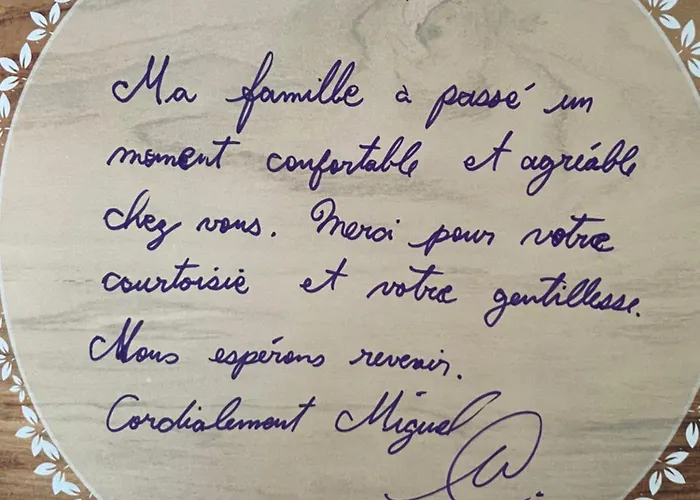 Ma famille à passé un
moment confortable et agréable
chez vous. Merci pour votre
courtoisie et votre gentillesse.
Nous espérons revenir.
Cordialement Miguel